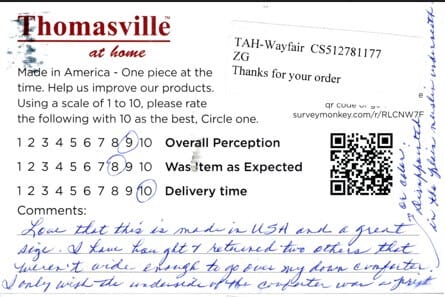 Thomasville™
at home
Made in America - One piece at the
time. Help us improve our products.
Using a scale of 1 to 10, please rate
the following with 10 as the best, Circle one.
TAH-Wayfair CS512781177
ZG
Thanks for your order
surveymonkey.com/r/RLCNW7F
1 2 3 4 5 6 7 8 9 10 Overall Perception
1 2 3 4 5 6 7 8 9 10 Was Item as Expected
1 2 3 4 5 6 7 8 9 10 Delivery time
Comments:
Love that this is made in USA and a great
size. I have bought & retained two others that
weren't wide enough to go over my down comforter.
I only wish the underside of the comforter was a print
or color.
I disappointed
in the plain muslin underneath.